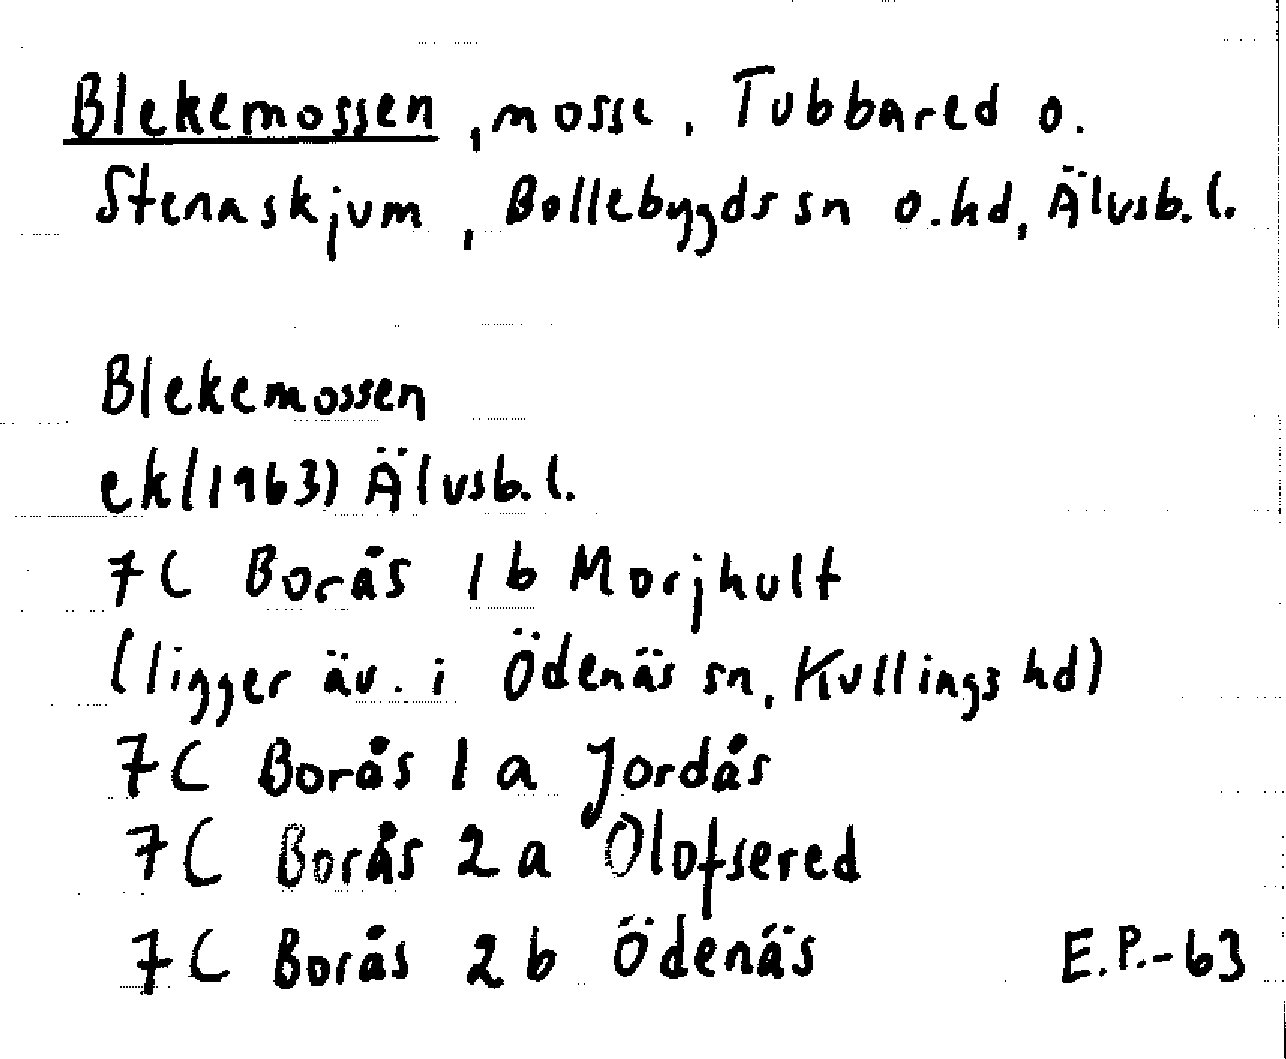 Blekemossen, mosse, Tubbared o.
Stenaskjum, Bollebygds sn o. hd, Älvsb. l.
Blekemossen
ek (1963) Älvsb. l.
7C Borås 1b Morjhult
(ligger äv. i Ödenäs sn, Kullings hd)
7C Borås 1a Jordås
7C Borås 2a Olofsered
7C Borås 2b Ödenäs
E.P.-63